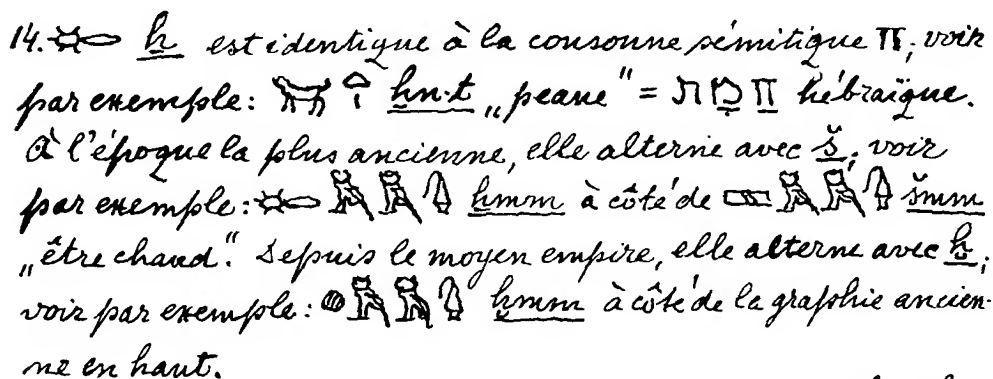 14. 𓄡 ẖ est identique à la consonne sémitique ח; voir
par exemple: 𓄚𓏏𓏤 ẖn·t „peaue" = חֵמֶת hébraïque.
À l'époque la plus ancienne, elle alterne avec š; voir
par exemple: 𓄡𓅓𓅓𓊮 ẖmm à côté de 𓈙𓅓𓅓𓊮 šmm
„être chaud". Depuis le moyen empire, elle alterne avec ḫ;
voir par exemple: 𓐍𓅓𓅓𓊮 ḫmm à côté de la graphie ancien-
ne en haut.